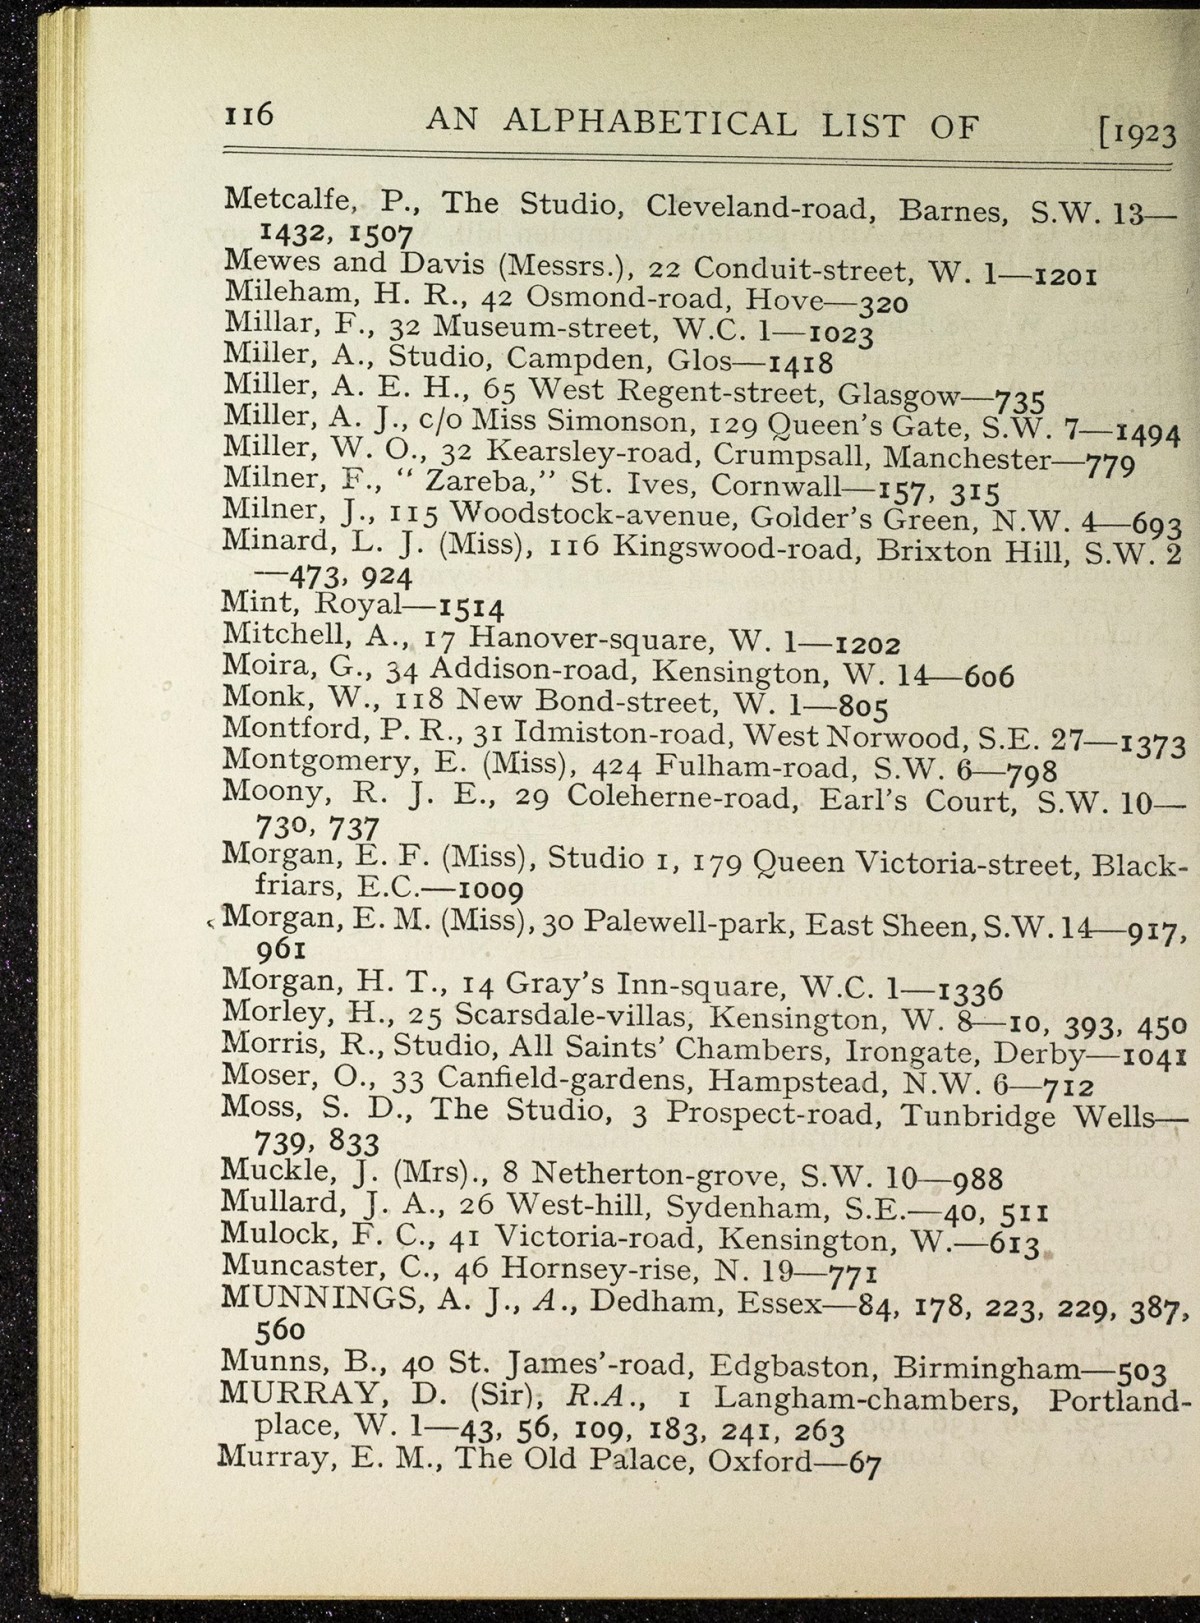 116 AN ALPHABETICAL LIST OF [1923
Metcalfe, P., The Studio, Cleveland-road, Barnes, S.W. 13—
1432, 1507
Mewes and Davis (Messrs.), 22 Conduit-street, W. 1—1201
Mileham, H. R., 42 Osmond-road, Hove—320
Millar, F., 32 Museum-street, W.C. 1—1023
Miller, A., Studio, Campden, Glos—1418
Miller, A. E. H., 65 West Regent-street, Glasgow—735
Miller, A. J., c/o Miss Simonson, 129 Queen's Gate, S.W. 7—1494
Miller, W. O., 32 Kearsley-road, Crumpsall, Manchester—779
Milner, F., “ Zareba,” St. Ives, Cornwall—157, 315
Milner, J., 115 Woodstock-avenue, Golder's Green, N.W. 4—693
Minard, L. J. (Miss), 116 Kingswood-road, Brixton Hill, S.W. 2
—473, 924
Mint, Royal—1514
Mitchell, A., 17 Hanover-square, W. 1—1202
Moira, G., 34 Addison-road, Kensington, W. 14—606
Monk, W., 118 New Bond-street, W. 1—805
Montford, P. R., 31 Idmiston-road, West Norwood, S.E. 27—1373
Montgomery, E. (Miss), 424 Fulham-road, S.W. 6—798
Moony, R. J. E., 29 Coleherne-road, Earl's Court, S.W. 10—
730, 737
Morgan, E. F. (Miss), Studio 1, 179 Queen Victoria-street, Black-
friars, E.C.—1009
Morgan, E. M. (Miss), 30 Palewell-park, East Sheen, S.W. 14—917,
961
Morgan, H. T., 14 Gray's Inn-square, W.C. 1—1336
Morley, H., 25 Scarsdale-villas, Kensington, W. 8—10, 393, 450
Morris, R., Studio, All Saints' Chambers, Irongate, Derby—1041
Moser, O., 33 Canfield-gardens, Hampstead, N.W. 6—712
Moss, S. D., The Studio, 3 Prospect-road, Tunbridge Wells—
739, 833
Muckle, J. (Mrs)., 8 Netherton-grove, S.W. 10—988
Mullard, J. A., 26 West-hill, Sydenham, S.E.—40, 511
Mulock, F. C., 41 Victoria-road, Kensington, W.—613
Muncaster, C., 46 Hornsey-rise, N. 19—771
MUNNINGS, A. J., A., Dedham, Essex—84, 178, 223, 229, 387,
560
Munns, B., 40 St. James'-road, Edgbaston, Birmingham—503
MURRAY, D. (Sir), R.A., 1 Langham-chambers, Portland-
place, W. 1—43, 56, 109, 183, 241, 263
Murray, E. M., The Old Palace, Oxford—67